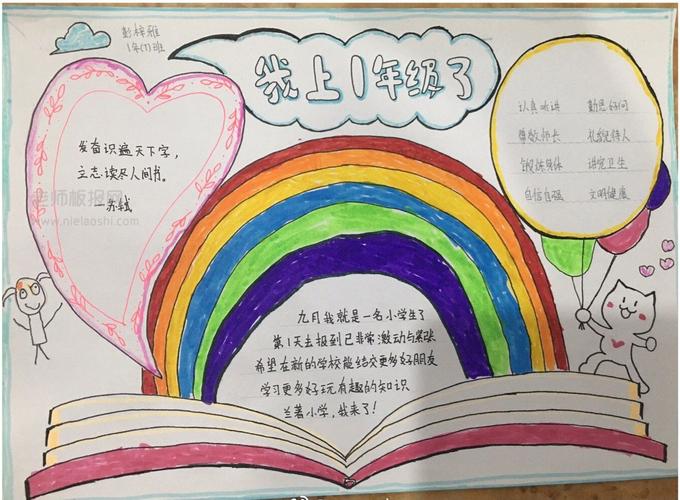 彭梓雅
1年(7)班
我上1年级了
发奋识遍天下字，
立志读尽人间书。
—苏轼
老师板报网
www.nielaoshi.com
认真听讲 勤思好问
尊敬师长 礼貌待人
锻炼身体 讲究卫生
自信自强 文明健康
九月我就是一名小学生了
第1天去报到已非常激动与紧张
希望在新的学校能结交更多好朋友
学习更多好玩有趣的知识
兰著小学，我来了！